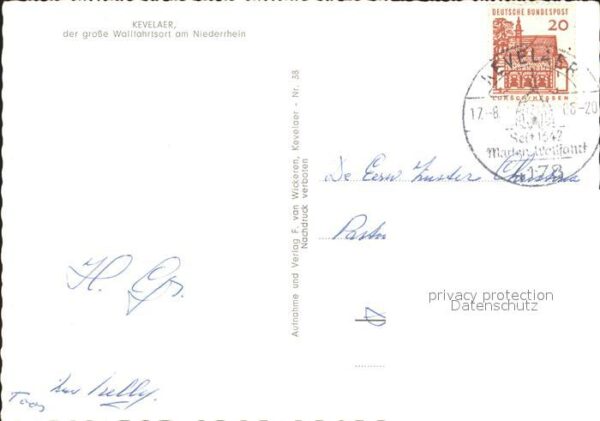 KEVELAER,
der große Wallfahrtsort am Niederrhein
DEUTSCHE BUNDESPOST
20
LORSCH/HESSEN
KEVELAER
17.-8.
-20
Seit 1642
Marien-Wallfahrt
4178
Aufnahme und Verlag F. van Wickeren, Kevelaer - Nr. 38
Nachdruck verboten
De Eerw Zusters
privacy protection
Datenschutz
H. Gr.
Nelly.
Toos